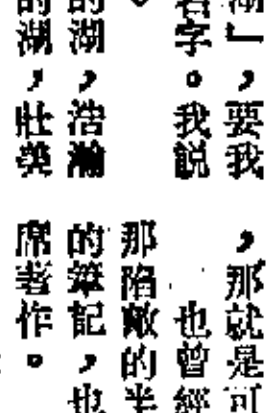 湖」，要我
名字。我説
的湖，浩瀚
的湖，壯美
，那就是可
也曾經
那陷敵的半
的筆記，也
席著作。